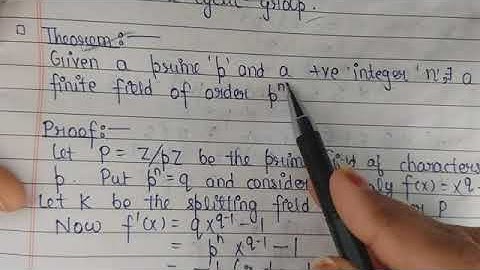 cyclic group.
Theorem:—
Given a prime 'p' and a +ve integer 'n', ∃ a
finite field of order pⁿ
Proof:—
Let P = Z/pZ be the prime field of characters
p. Put pⁿ = q and consider poly f(x) = x^q -
Let K be the splitting field P
Now f'(x) = q x^q-1 - 1
= pⁿ x^q-1 - 1